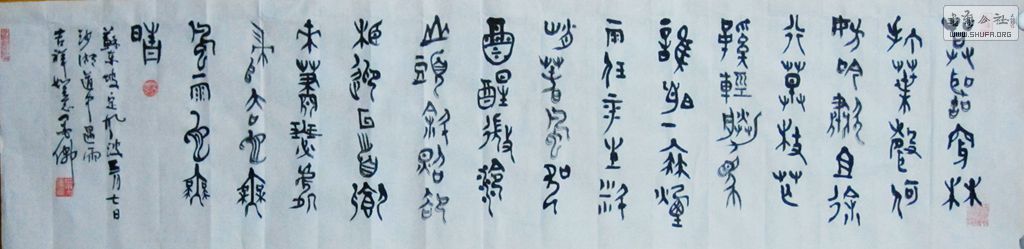 莫聽穿林
打葉聲何
妨吟嘯且徐
行竹杖芒
鞋輕勝馬
誰怕一蓑煙
雨任平生料
峭春風吹
酒醒微冷
山頭斜照卻
相迎回首向
來蕭瑟處
歸去也無
風雨也無
晴
蘇東坡定風波三月七日
沙湖道中遇雨
吉祥如意
书法公社
WWW.SHUFA.ORG